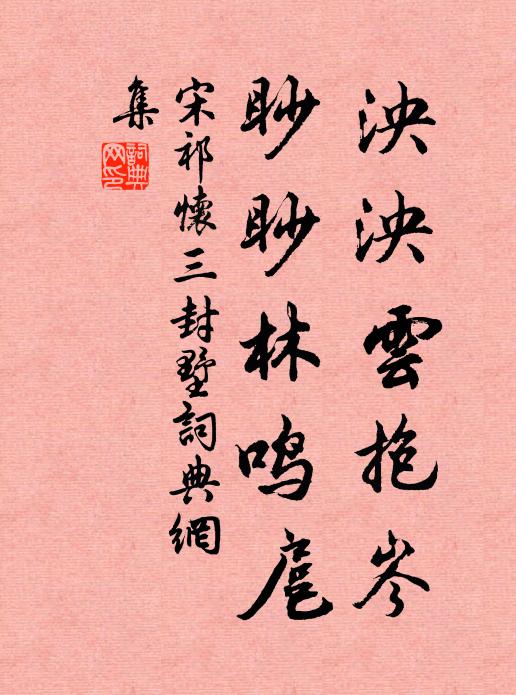 泱泱雲抱岑
眇眇林鳴扈
宋祁懷三封墅詞典網
集
詞典網印